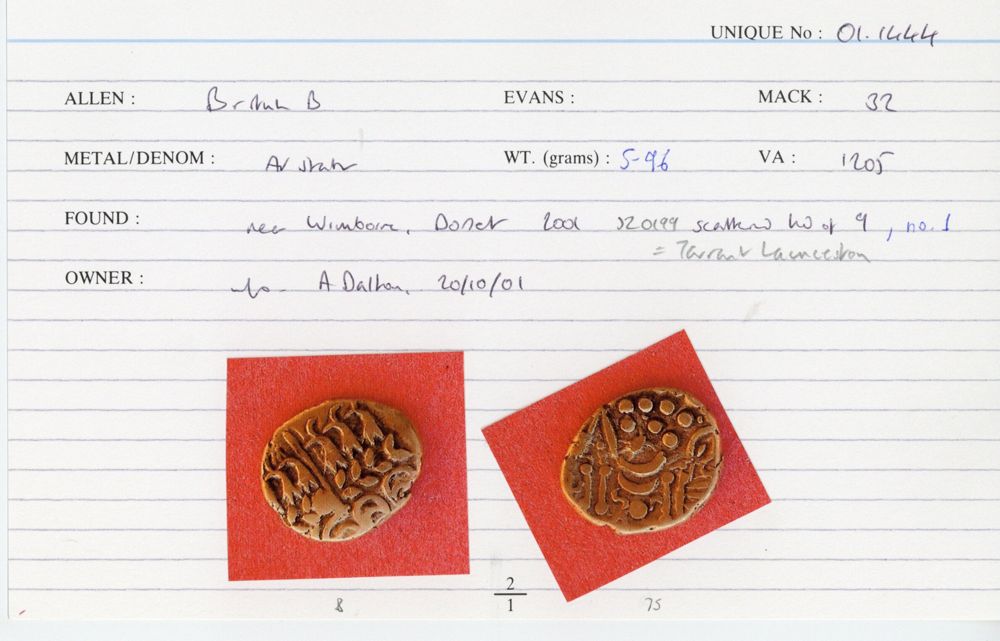 UNIQUE No : 01.1444
ALLEN : British B EVANS : MACK : 32
METAL/DENOM : AV stater WT. (grams) : 5-96 VA : 1205
FOUND : near Wimborne, Dorset 2001 scattered hd of 9, no. 1
= Tarrant Launceston
OWNER : A Dalton, 20/10/01
2
8 1 75